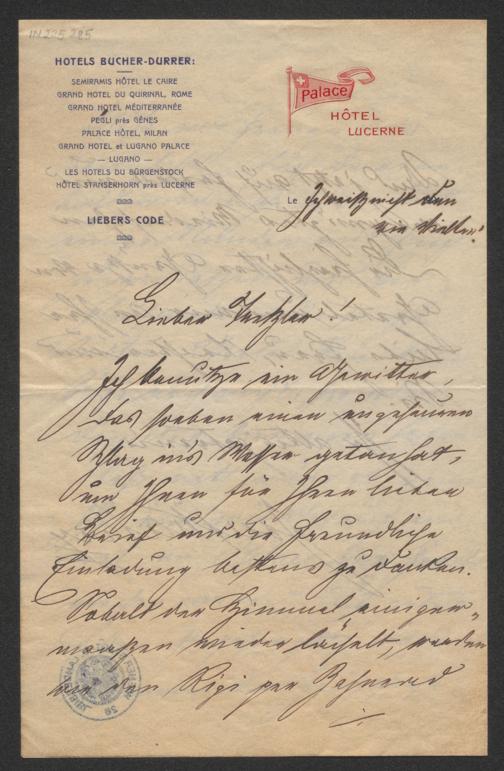 IN 225.285
HOTELS BUCHER-DURRER:
SEMIRAMIS HÔTEL LE CAIRE
GRAND HOTEL DU QUIRINAL, ROME
GRAND HOTEL MÉDITERRANÉE
PEGLI près GÊNES
PALACE HÔTEL, MILAN
GRAND HOTEL et LUGANO PALACE
— LUGANO —
LES HOTELS DU BÜRGENSTOCK
HÔTEL STANSERHORN près LUCERNE
LIEBERS CODE
Palace
HÔTEL
LUCERNE
Le Ich weiß nicht den
wie vielten!
Lieber
Ich benutze ein Gewitter,
das soeben einen ungeheuren
Schlag ins Wasser gethan hat,
um Ihnen für Ihren lieben
Brief und die freundliche
Einladung bestens zu danken.
Sobald der Himmel einiger-
maaßen wieder lächelt, werden
wir den Rigi per Zahnrad